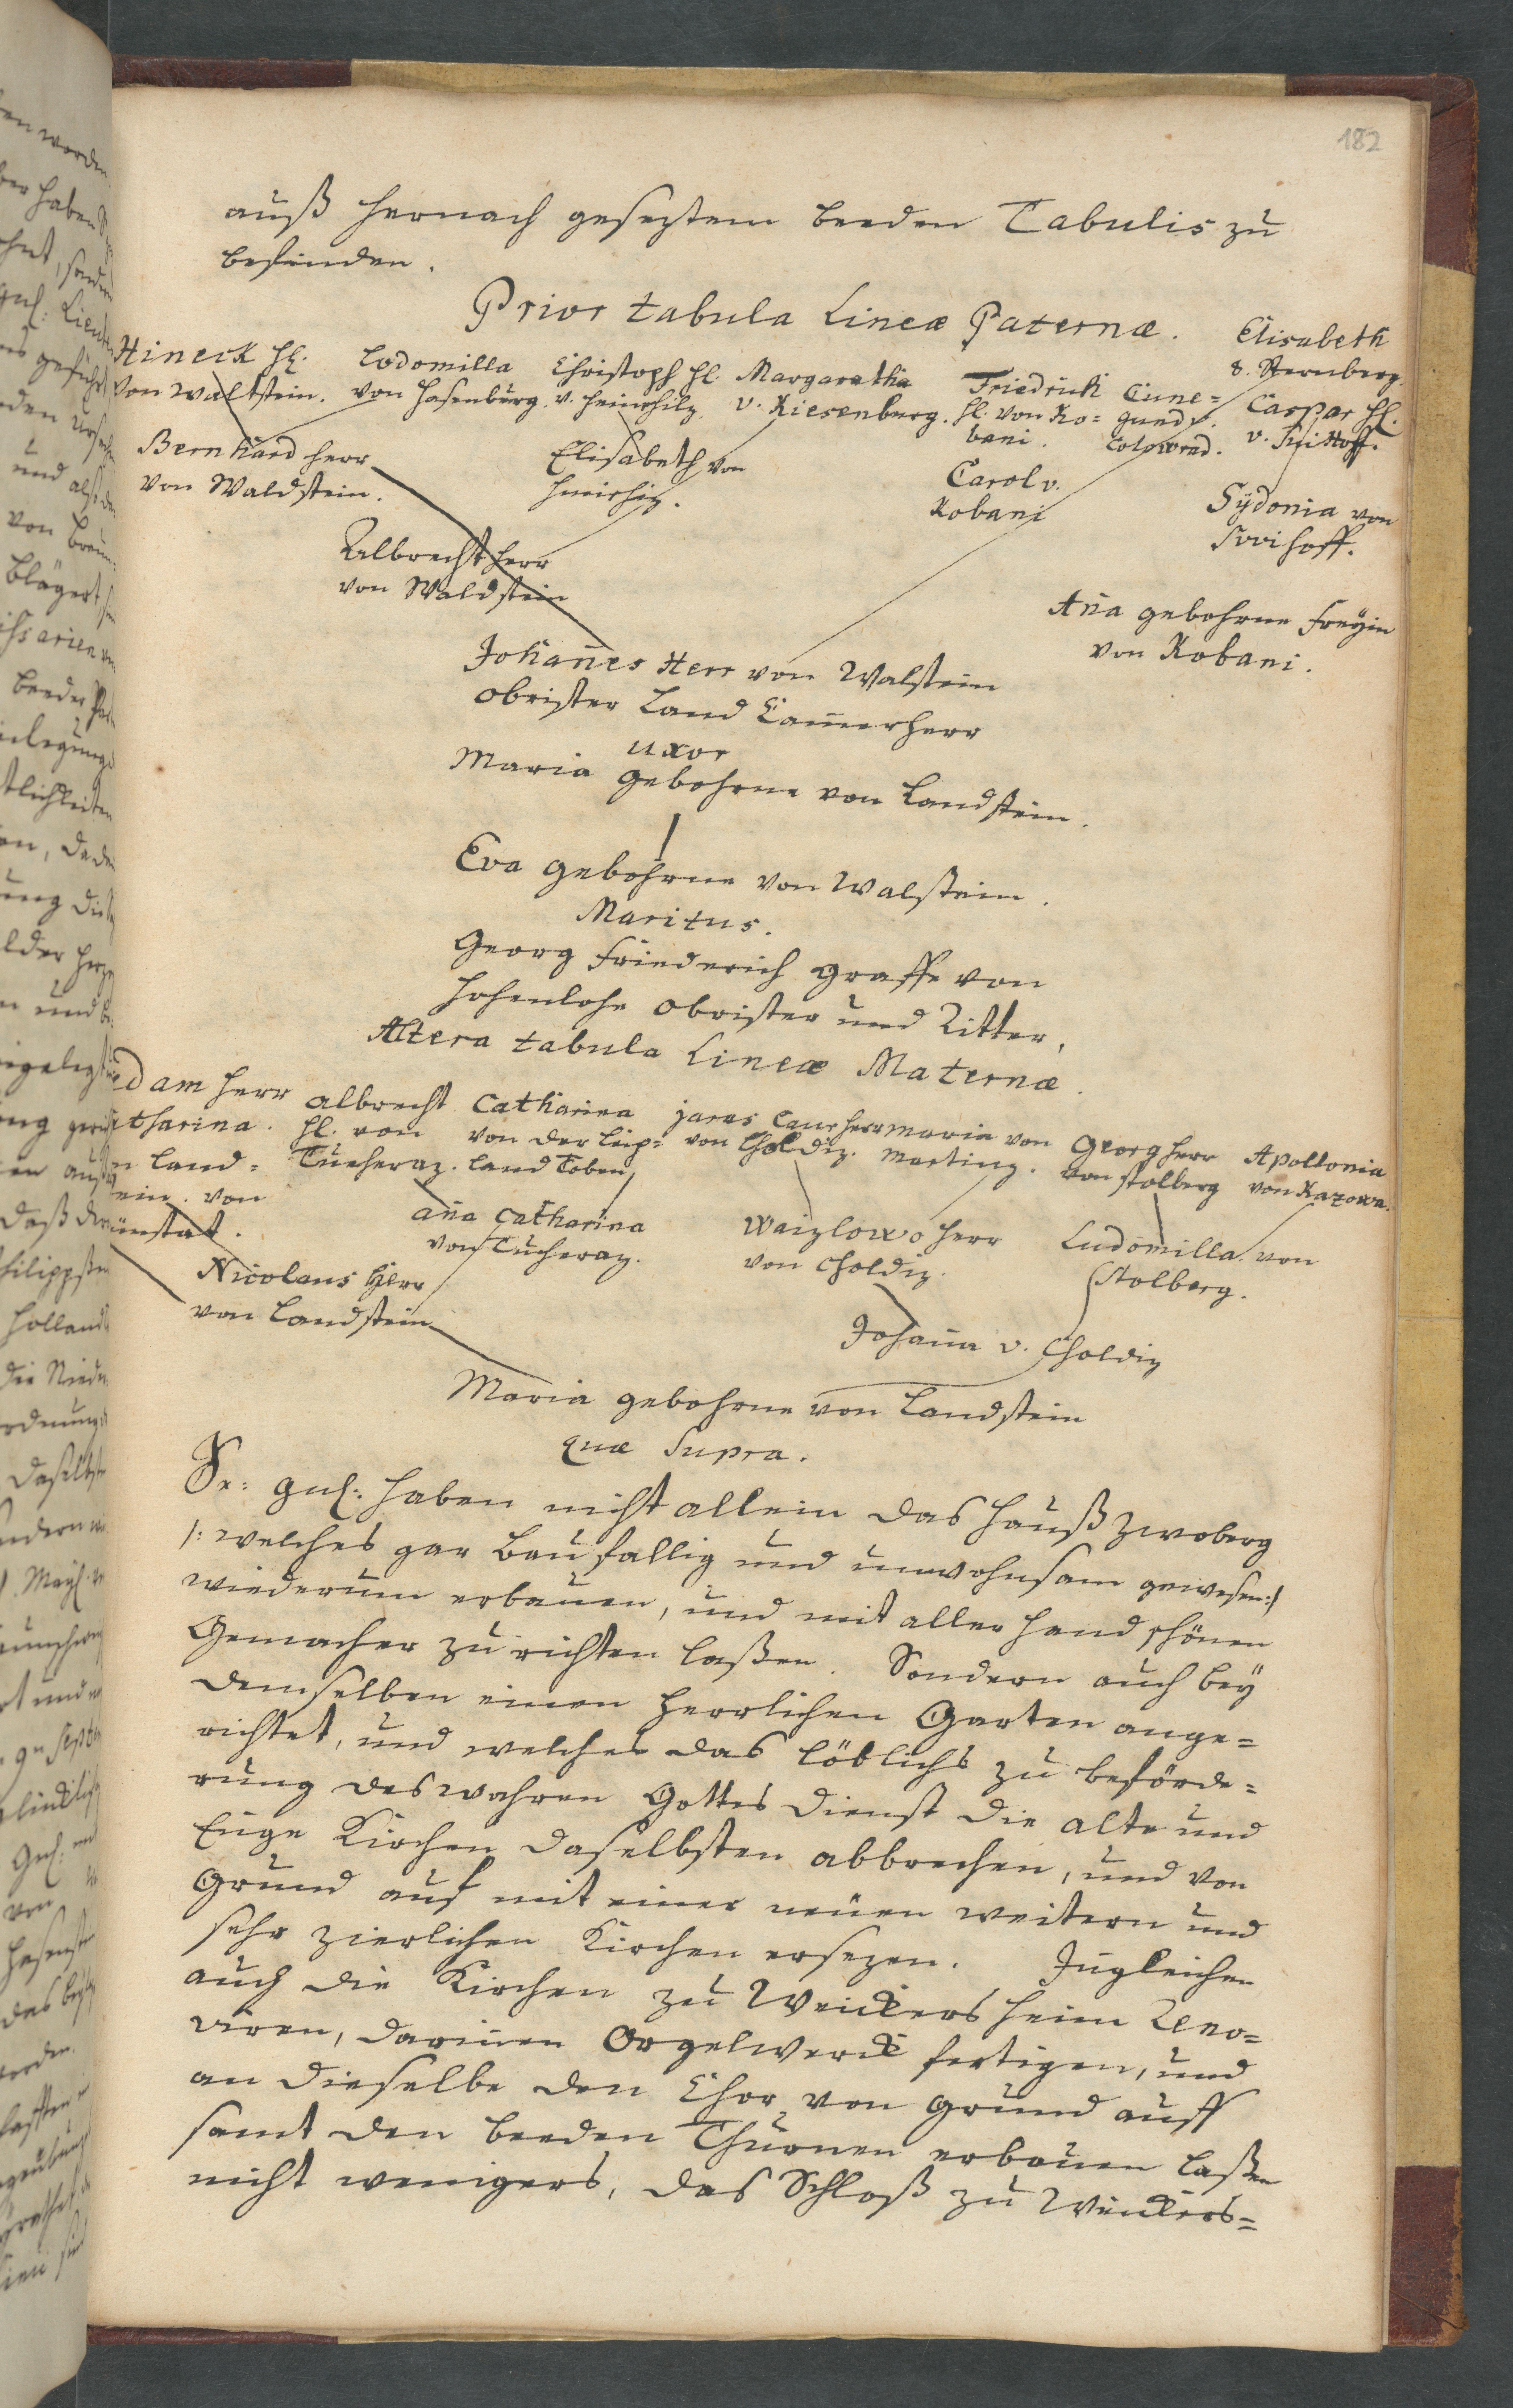 182
auß hernach gesezten beeden Tabulis zu
befinden.
Prior tabula Lineæ Paternæ.
Hineck Hl.
von Waltstein.
Lodomilla
von Hasenburg.
Christoph Hl.
v.
Margaretha
v. Riesenberg.
Friedrich
Hl. von Ko=
bani.
Cune=
gund v.
Colowrad.
Elisabeth
v. Sternberg.
Caspar Hl.
v.
Bernhard Herr
von Waldstein.
Elisabeth von
Carol v.
Kobani
Sÿdonia von
Albrecht Herr
von Waldstein
Aña gebohrne Freÿin
von Kobani.
Johañes Herr von Walstein
Obrister Land Cam̄erherr
uxor
Maria gebohrne von Landstein.
Eva gebohrne von Walstein.
Maritus.
Georg Friederich Graffe von
Hohenlohe Obrister und Ritter,
Altera tabula Lineæ Maternæ.
dam Herr
tharina.
Land=
ein. von
nstat.
Albrecht
Hl. von
Tucheraz.
Catharina
von der Leip=
land Toben
Jaros Laus Herr
von Choldiz.
Maria von
Marting.
Georg Herr
von Stolberg
Apollonia
von Kazowa.
Aña Catharina
von Tucheraz.
Waizlowo Herr
von Choldiz.
Ludomilla von
Stolberg.
Nicolaus Herr
von Landstein
Johaña v. Choldiz
Maria gebohrne von Landstein
quæ Supra.
Se: Gnl: haben nicht allein das Hauß Zwoberg
/: welches gar Baufallig und unwohnsam gewesen :/
wiederum erbauen, und mit aller Hand schönen
Gemacher zu richten laßen. Sondern auch beÿ
demselben einen Herrlichen Garten ange=
richtet, und welches das löblichs zu beförde=
rung des wahren Gottes Dienst die alte und
Enge Kirchen daselbsten abbrechen, und von
Grund auf mit einer neuen weitern und
sehr zierlichen Kirchen ersezen. Ingleichen
auch die Kirchen zu Weickersheim Reno=
viren, dariñen Orgelwerck fertigen, und
an dieselbe den Chor von Grund auff
samt den beeden Thürnen erbauen laßen
nicht wenigers, das Schloß zu Weickers=